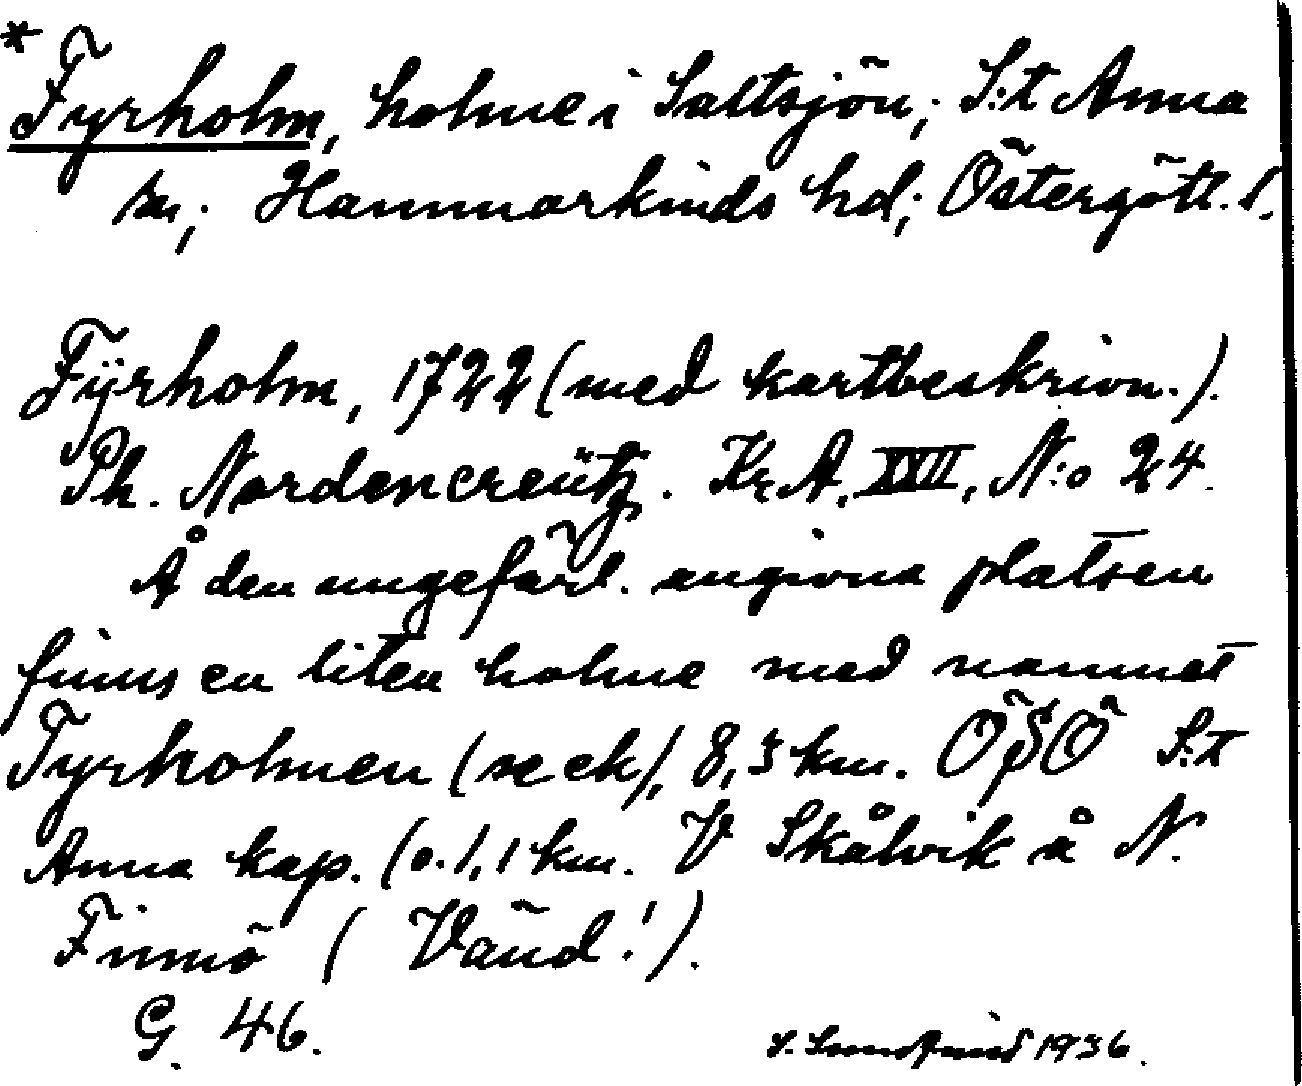 *Fyrholm, holme i Saltsjön; S:t Anna
sn; Hammarkinds hd; Östergötl. l.
Fÿrholm, 1722 (med kartbeskrivn.).
Ph. Nordencreütz. Kr.A. XVII, N:o 24.
Å den ungefärl. angivna platsen
finns en liten holme med namnet
Tyrholmen (se ek), 8,5 km. ÖSÖ S:t
Anna kap. (o. 1,1 km. V Skålvik å N.
Finnö (Vänd!).
G. 46.
1936.